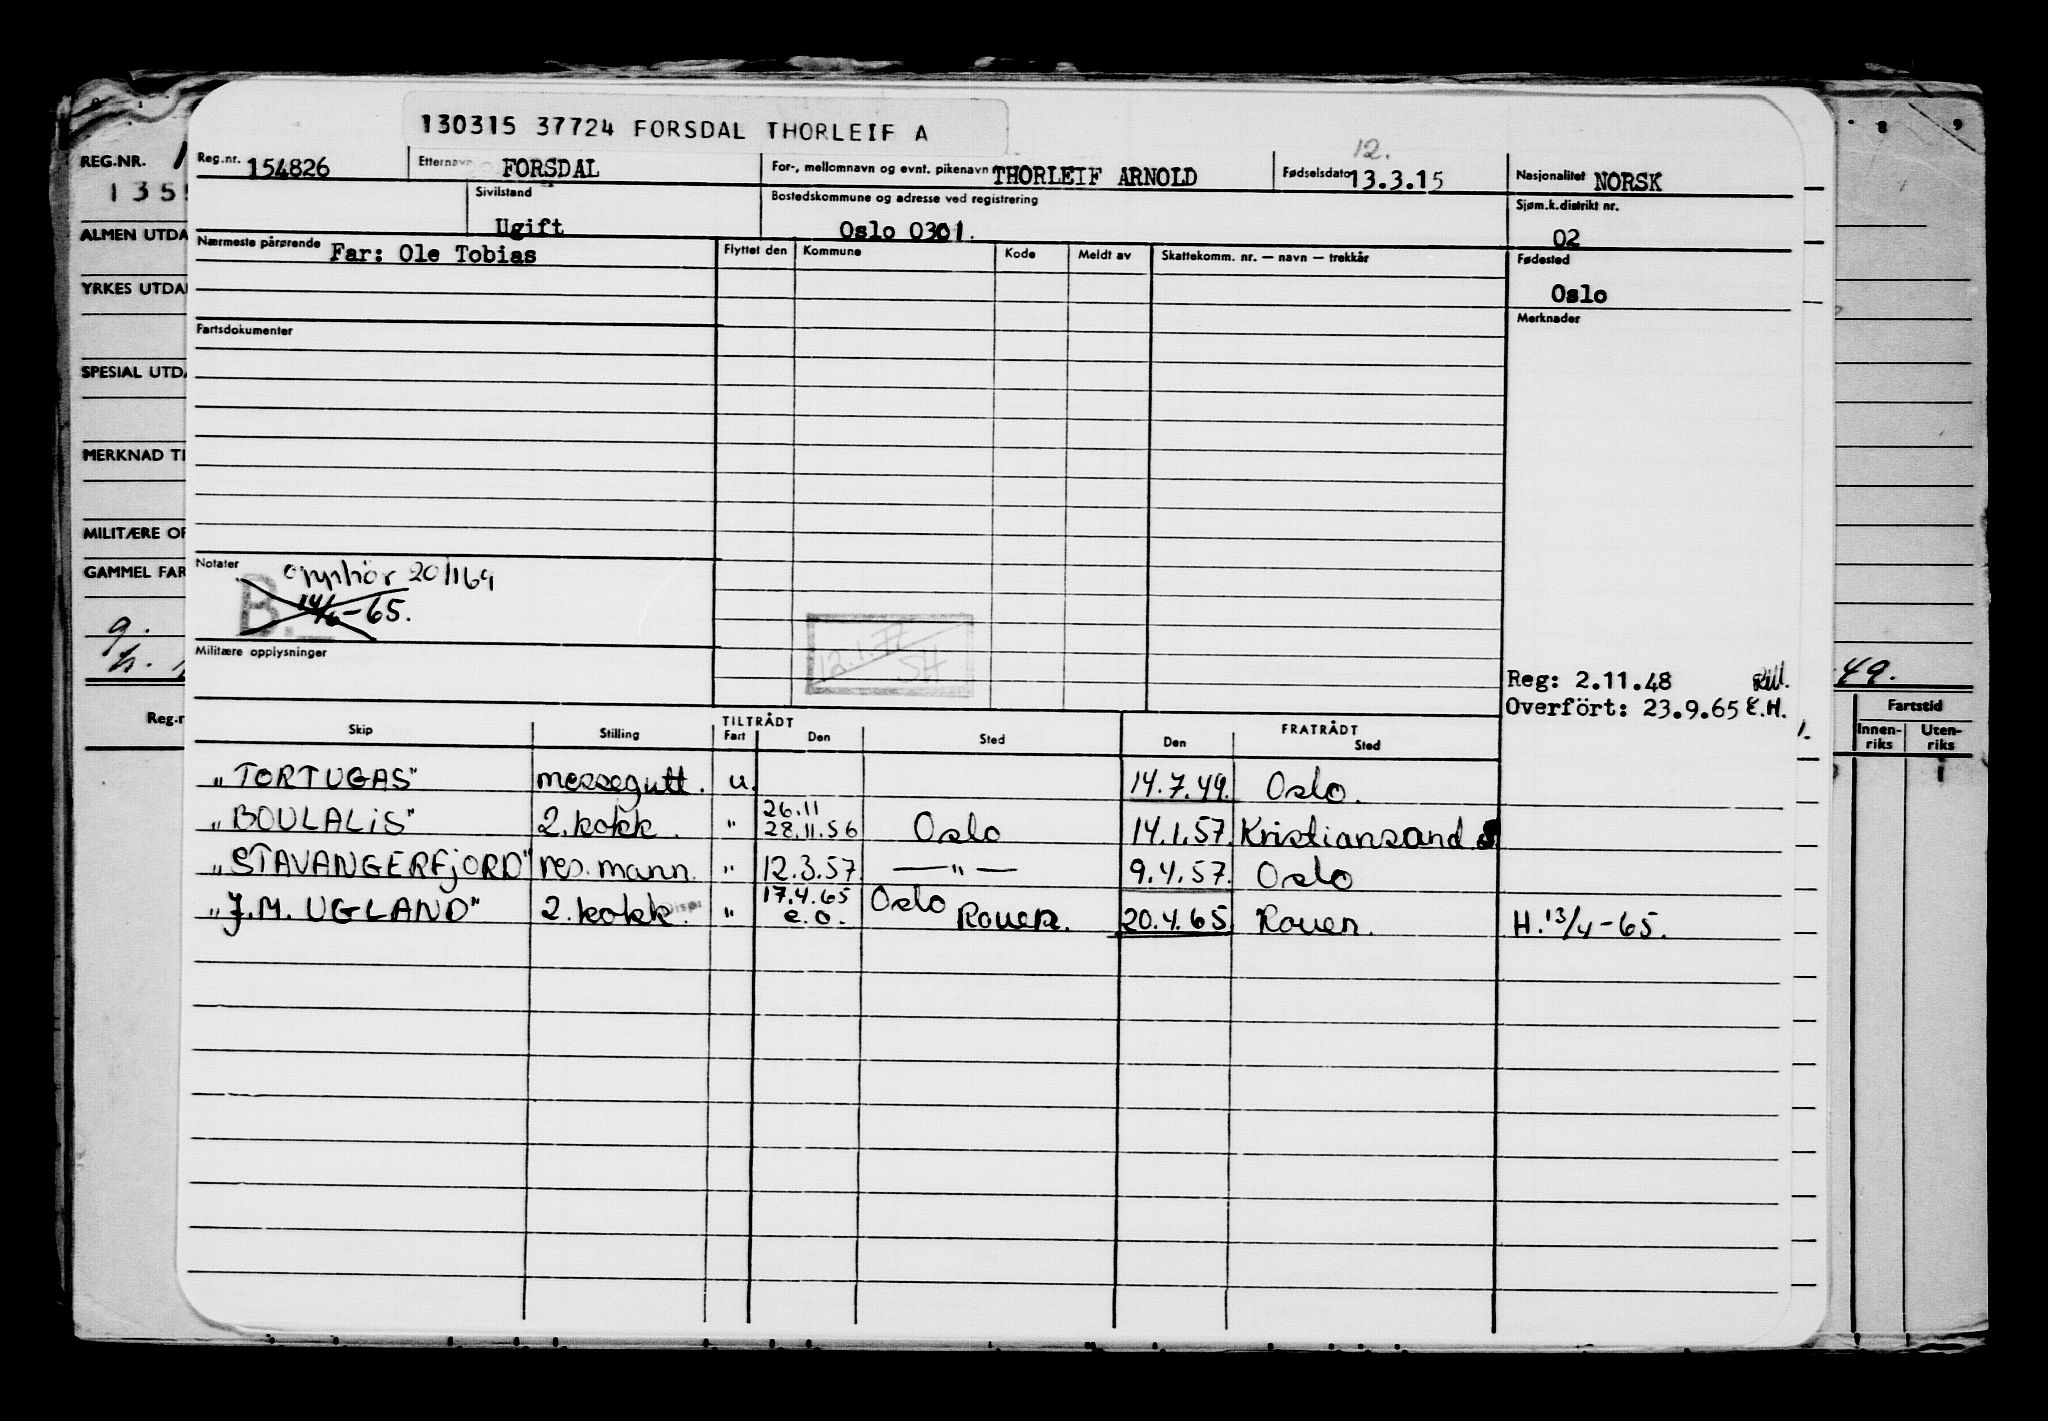 130315 37724 FORSDAL THORLEIF A
Reg.nr. 154826 Etternavn FORSDAL For-, mellomnavn og evnt. pikenavn THORLEIF ARNOLD Fødselsdato 12. 13.3.15 Nasjonalitet NORSK
Sivilstand Ugift Bostedskommune og adresse ved registrering Oslo 0301. Sjøm.k.distrikt nr. 02
Nærmeste pårørende Far: Ole Tobias Flyttet den Kommune Kode Meldt av Skattekomm. nr. — navn — trekkår Fødested Oslo
Fartsdokumenter Merknader
Notater opphör 20/1 69
B. 14/6-65.
12.1.77
SH
Militære opplysninger
Reg: 2.11.48
Overfört: 23.9.65 E.H.
TILTRÅDT FRATRÅDT
Skip Stilling Fart Den Sted Den Sted
"TORTUGAS" messegutt. u. 14.7.49. Oslo.
"BOULALIS" 2.kokk. " 26.11 28.11.56 Oslo 14.1.57. Kristiansand S
"STAVANGERFJORD" res.mann. " 12.3.57 —"— 9.4.57. Oslo
"J.M. UGLAND" 2.kokk. Disp. " 17.4.65 e.o. Oslo Rouen. 20.4.65 Rouen. H.13/4-65.
REG.NR. 1
135
ALMEN UTDA
YRKES UTDA
SPESIAL UTDA
MERKNAD TI
MILITÆRE OP
GAMMEL FAR
Reg.n
8 9
49.
Fartstid
Innen-riks Uten-riks